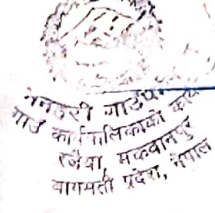 मनहरी गाउँपा
गाउँ कार्यपालिकाको कार्या
रजैया, मकवानपुर
बागमती प्रदेश, नेपाल